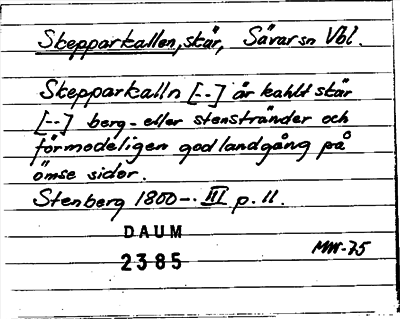 Skepparkallen, skär, Sävar sn Vbl.
Skepparkalln [--] är kahlt skär
[--] berg- eller stenstränder och
förmodeligen god landgång på
ömse sidor.
Stenberg 1800-. III p. 11.
DAUM
2385
MW-75